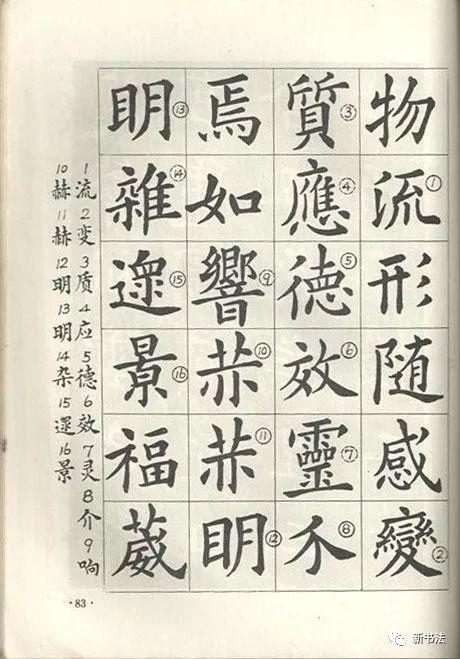 物流①形随感變②
質③應④德⑤效⑥靈⑦介⑧
焉如響⑨赫⑩赫⑪明⑫
明⑬雜⑭遝⑮景⑯福葳
1流2变3质4应5德6效7灵8介9响
10赫11赫12明13明14杂15遝16景
·83·
新书法